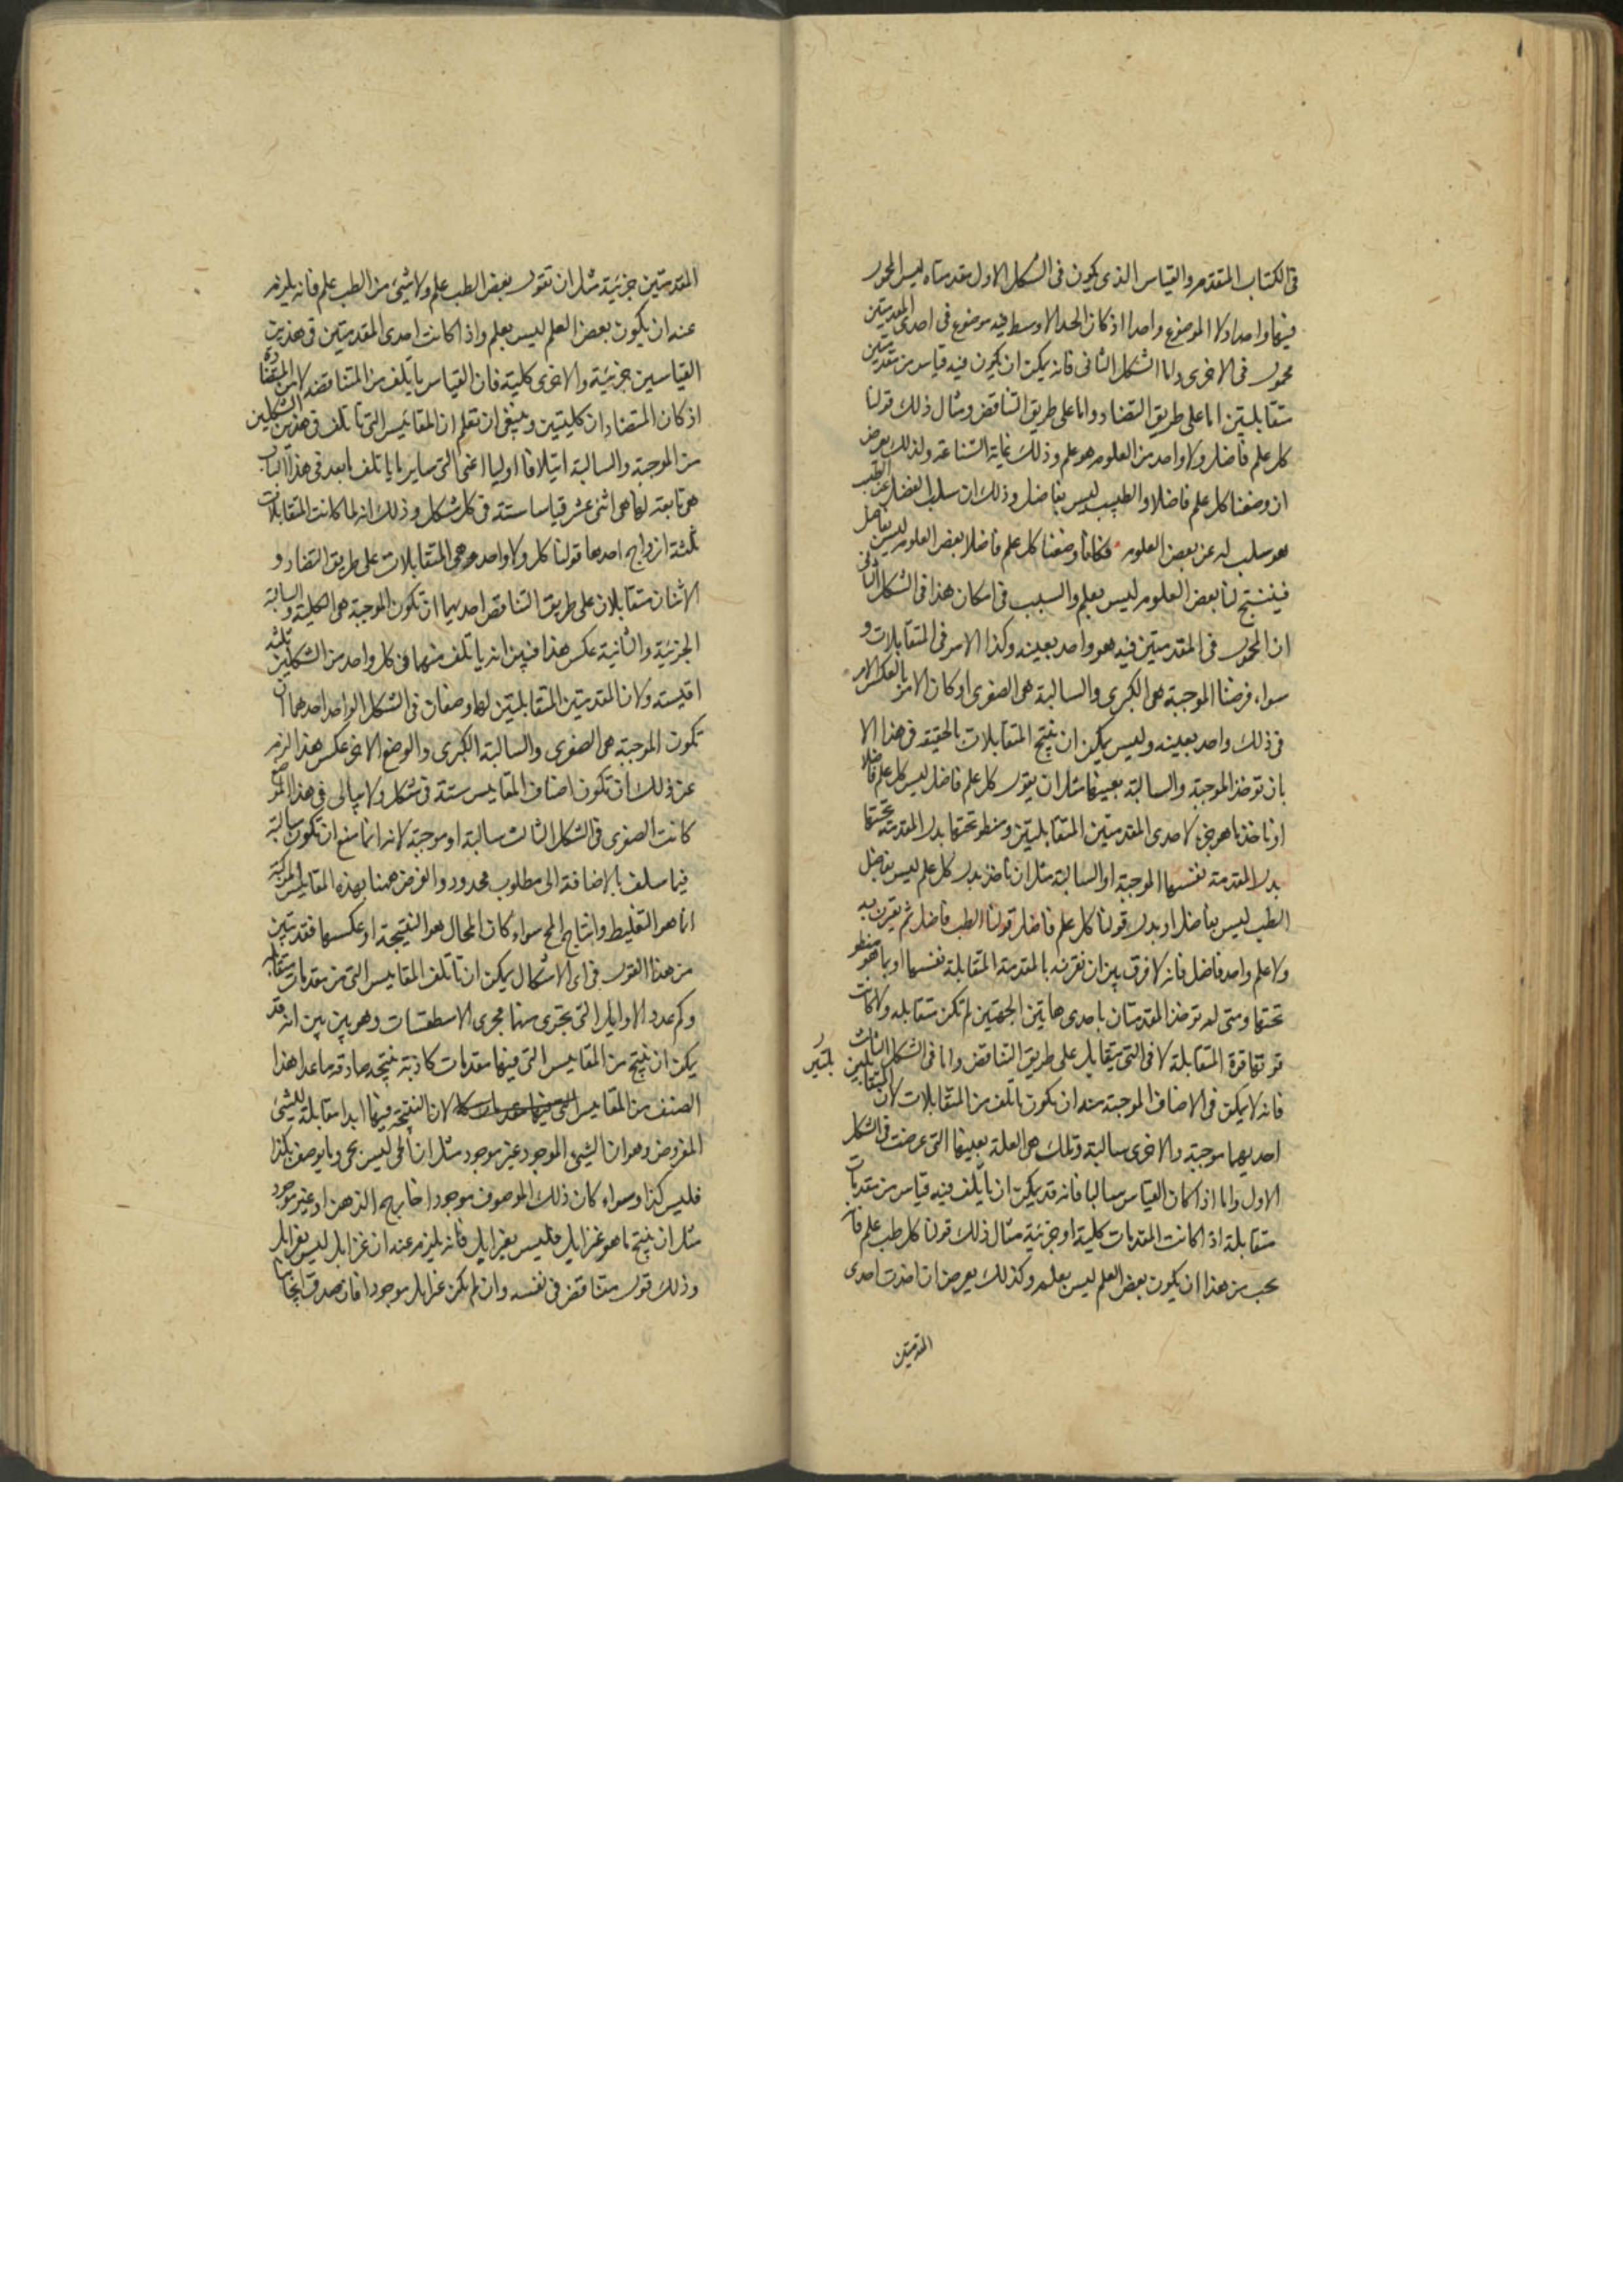 فى الكتاب المتقدم والقياس الذى يكون فى الشكل الاول مقدمتاه ليس المحمول
فيها واحدا ولا الموضوع واحدا اذ كان الحد الاوسط فيه موضوع فى احدى المقدمتين
محمول فى الاخرى واما الشكل الثانى فانه يمكن ان يكون فيه قياس من مقدمتين
متقابلتين اما على طريق التضاد واما على طريق التناقض ومثال ذلك قولنا
كل علم فاضل ولا واحد من العلوم هو علم وذلك غاية الشناعة ولذلك يعرض
ان وضعنا كل علم فاضلا والطب ليس بفاضل وذلك ان سلب الفضل عن الطب
هو سلب له عن بعض العلوم فكانا وضعنا كل علم فاضلا بعض العلوم ليس بفاضل
فينتج لنا بعض العلوم ليس بعلم والسبب فى امكان هذا فى الشكل الثانى
ان المحمول فى المقدمتين فيه هو واحد بعينه وكذا الامر فى المتقابلات و
سواء فرضنا الموجبة هى الكبرى والسالبة هى الصغرى او كان الامر بالعكس الامر
فى ذلك واحد بعينه وليس يمكن ان ينتج المتقابلات بالحقيقه فى هذا الا
بان توخذ الموجبة والسالبة بعينها مثل ان يقول كل علم فاضل ليس كل علم فاضلا
او ناخذ ما هو جزء لاحدى المقدمتين المتقابلتين ومنطو تحتها بدل المقدمة تحتها
بدل المقدمة نفسها الموجبة او السالبة مثل ان ناخذ بدل كل علم ليس بفاضل
الطب ليس بفاضل او بدل قولنا كل علم فاضل قولنا الطب فاضل ثم يقرن به
ولا علم واحد فاضل فانه لا فرق بين ان نقرنه بالمقدمة المتقابلة نفسها او بما هو منطو
تحتها ومتى لم توخذ المقدمتان باحدى هاتين الجهتين لم تكن متقابله ولا كانت
قوتها قوة المتقابلة لا فى التى يتقابل على طريق التناقض واما فى الشكل الثالث
فانه لا يمكن فى الاصناف الموجبة منه ان يكون تالف من المتقابلات لان المتقابلتين
احديهما موجبة والاخرى سالبة وتلك هى العلة بعينها التى عرضت فى الشكل
الاول واما اذا كان القياس سالبا فانه قد يمكن ان ياتلف فيه قياس من مقدمات
متقابلة اذا كانت المقدمات كلية او جزئية مثال ذلك قولنا كل طب علم فانه
يجب من هذا ان يكون بعض العلم ليس بعلم وكذلك يعرض ان اخذت احدى
المقدمتين
المقدمتين جزئية مثل ان تقول بعض الطب علم ولا شىء من الطب علم فانه يلزم
عنه ان يكون بعض العلم ليس بعلم واذا كانت احدى المقدمتين فى هذين
القياسين جزئية والاخرى كلية فان القياس ياتلف من المتناقضه لا من المتضادة
اذ كان المتضادان كليتين وينبغى ان تعلم ان المقائيس التى تاتلف فى هذين الشكلين
من الموجبة والسالبة ايتلافا اوليا اعنى التى ساير ما ياتلف بعد فى هذا الباب
هى تابعة لها هى اثنى عشر قياسا ستة فى كل شكل وذلك انه لما كانت المتقابلات
ثلثة ازواج احدها قولنا كل ولا واحد وهى المتقابلات على طريق التضاد و
الاثنان متقابلان على طريق التناقض احديهما ان تكون الموجبة هى الكلية والسالبة
الجزئية والثانية عكس هذا فبين انه ياتلف منها فى كل واحد من الشكلين ثلثة
اقيسة ولان المقدمتين المتقابلتين لها وضعان فى الشكل الواحد احدهما ان
تكون الموجبة هى الصغرى والسالبة الكبرى والوضع الاخر عكس هذا لزم
عن ذلك ان تكون اصناف المقاييس ستة فى شكل ولا يبالى فى هذا الموضع
كانت الصغرى فى الشكل الثالث سالبة او موجبة لانه انما منع ان تكون سالبة
فيما سلف بالاضافة الى مطلوب محدود والغرض ههنا بهذه المقاييس المركبة
انما هو التغليط وانتاج المحال سواء كان المحال هو النتيجة او عكسها فقد تبين
من هذا القول فى اى الاشكال يمكن ان تاتلف المقاييس التى من مقدمات متقابلة
وكم عدد الاوايل التى تجرى منها مجرى الاسطقسات وهو بين بين انه قد
يمكن ان ينتج من المقاييس التى فيها مقدمات كاذبة نتيجة صادقه ما عدا هذا
الصنف من المقاييس لان النتيجة فيها ابدا مقابلة للشىء
المفروض وهو ان الشىء الموجود غير موجود مثل ان الحى ليس بحى وما يوصف بكذا
فليس كذا وسواء كان ذلك الموصوف موجودا خارج الذهن او غير موجود
مثل ان ينتج ما هو غزايل فليس بغزايل فانه يلزم عنه ان غزايل ليس بغزايل
وذلك قول متناقض فى نفسه وان لم يكن غزايل موجودا فان صدق ايجابها